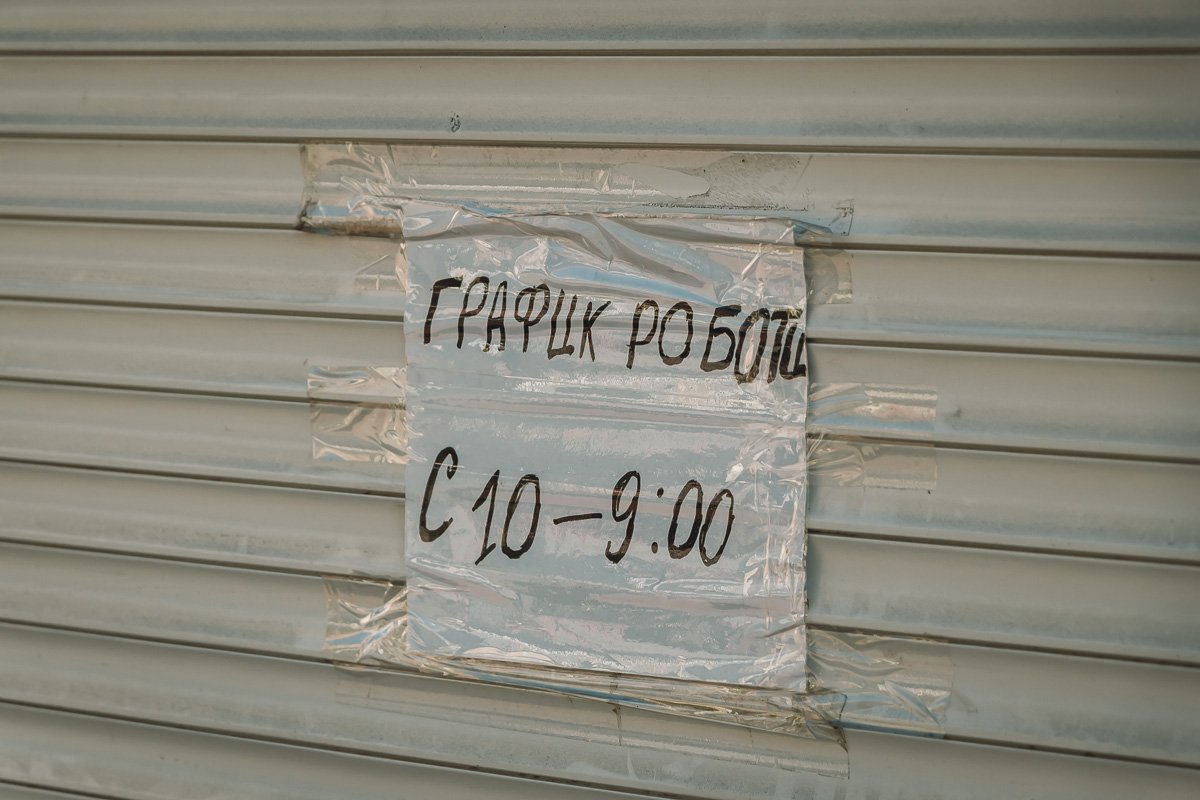 ГРАФИК РОБОТИ
С 10 – 9:00